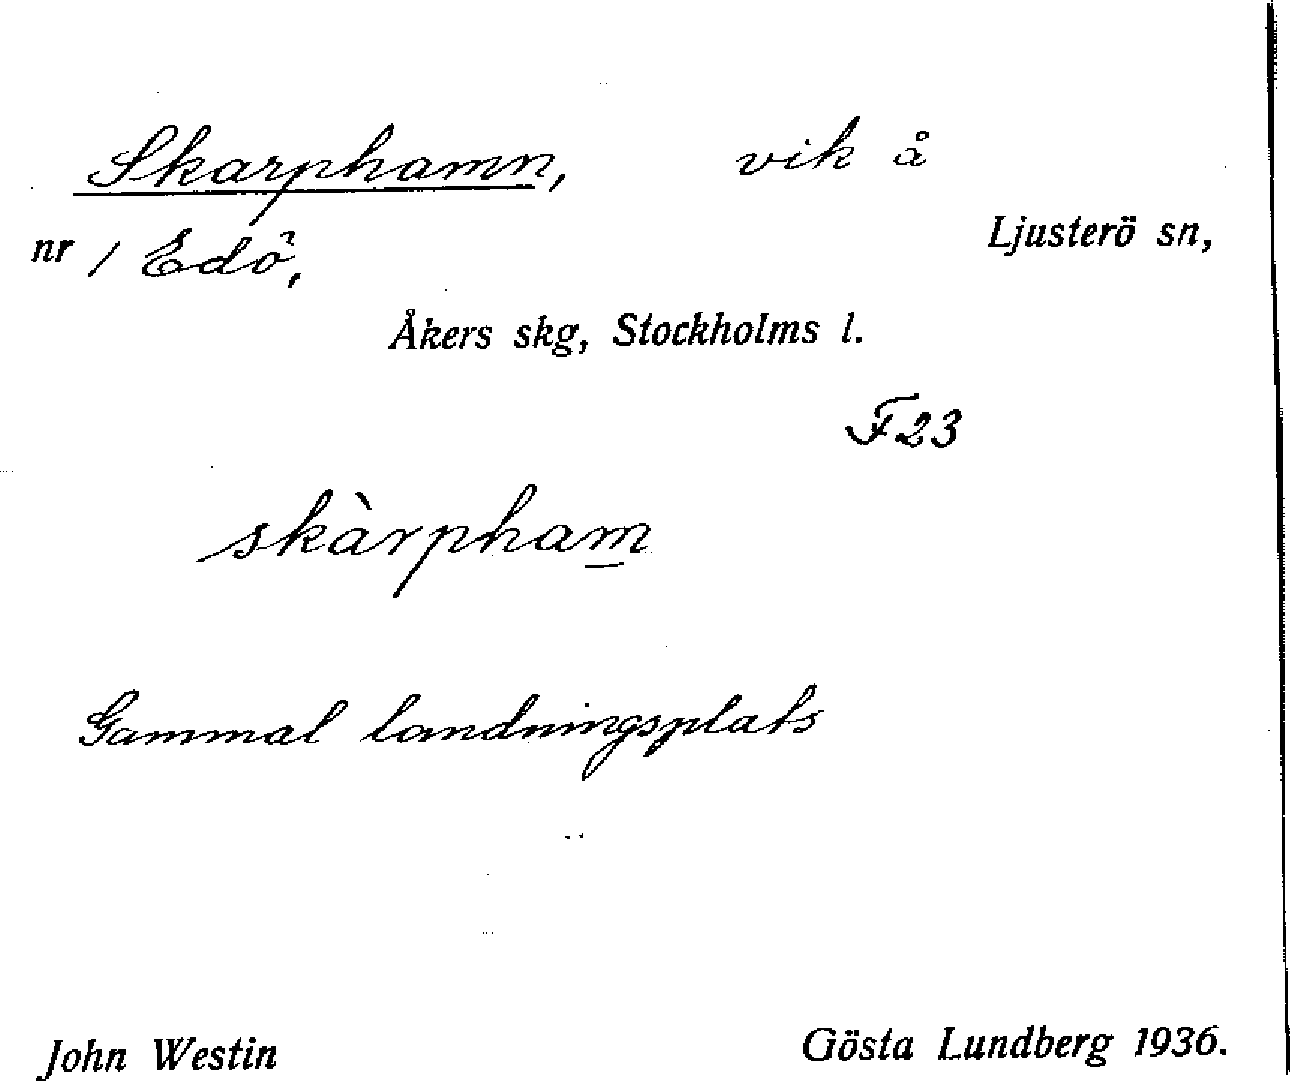 Skarphamn, vik å
nr 1 Edö, Ljusterö sn,
Åkers skg, Stockholms l.
F23
skàrpham
Gammal landningsplats
John Westin Gösta Lundberg 1936.